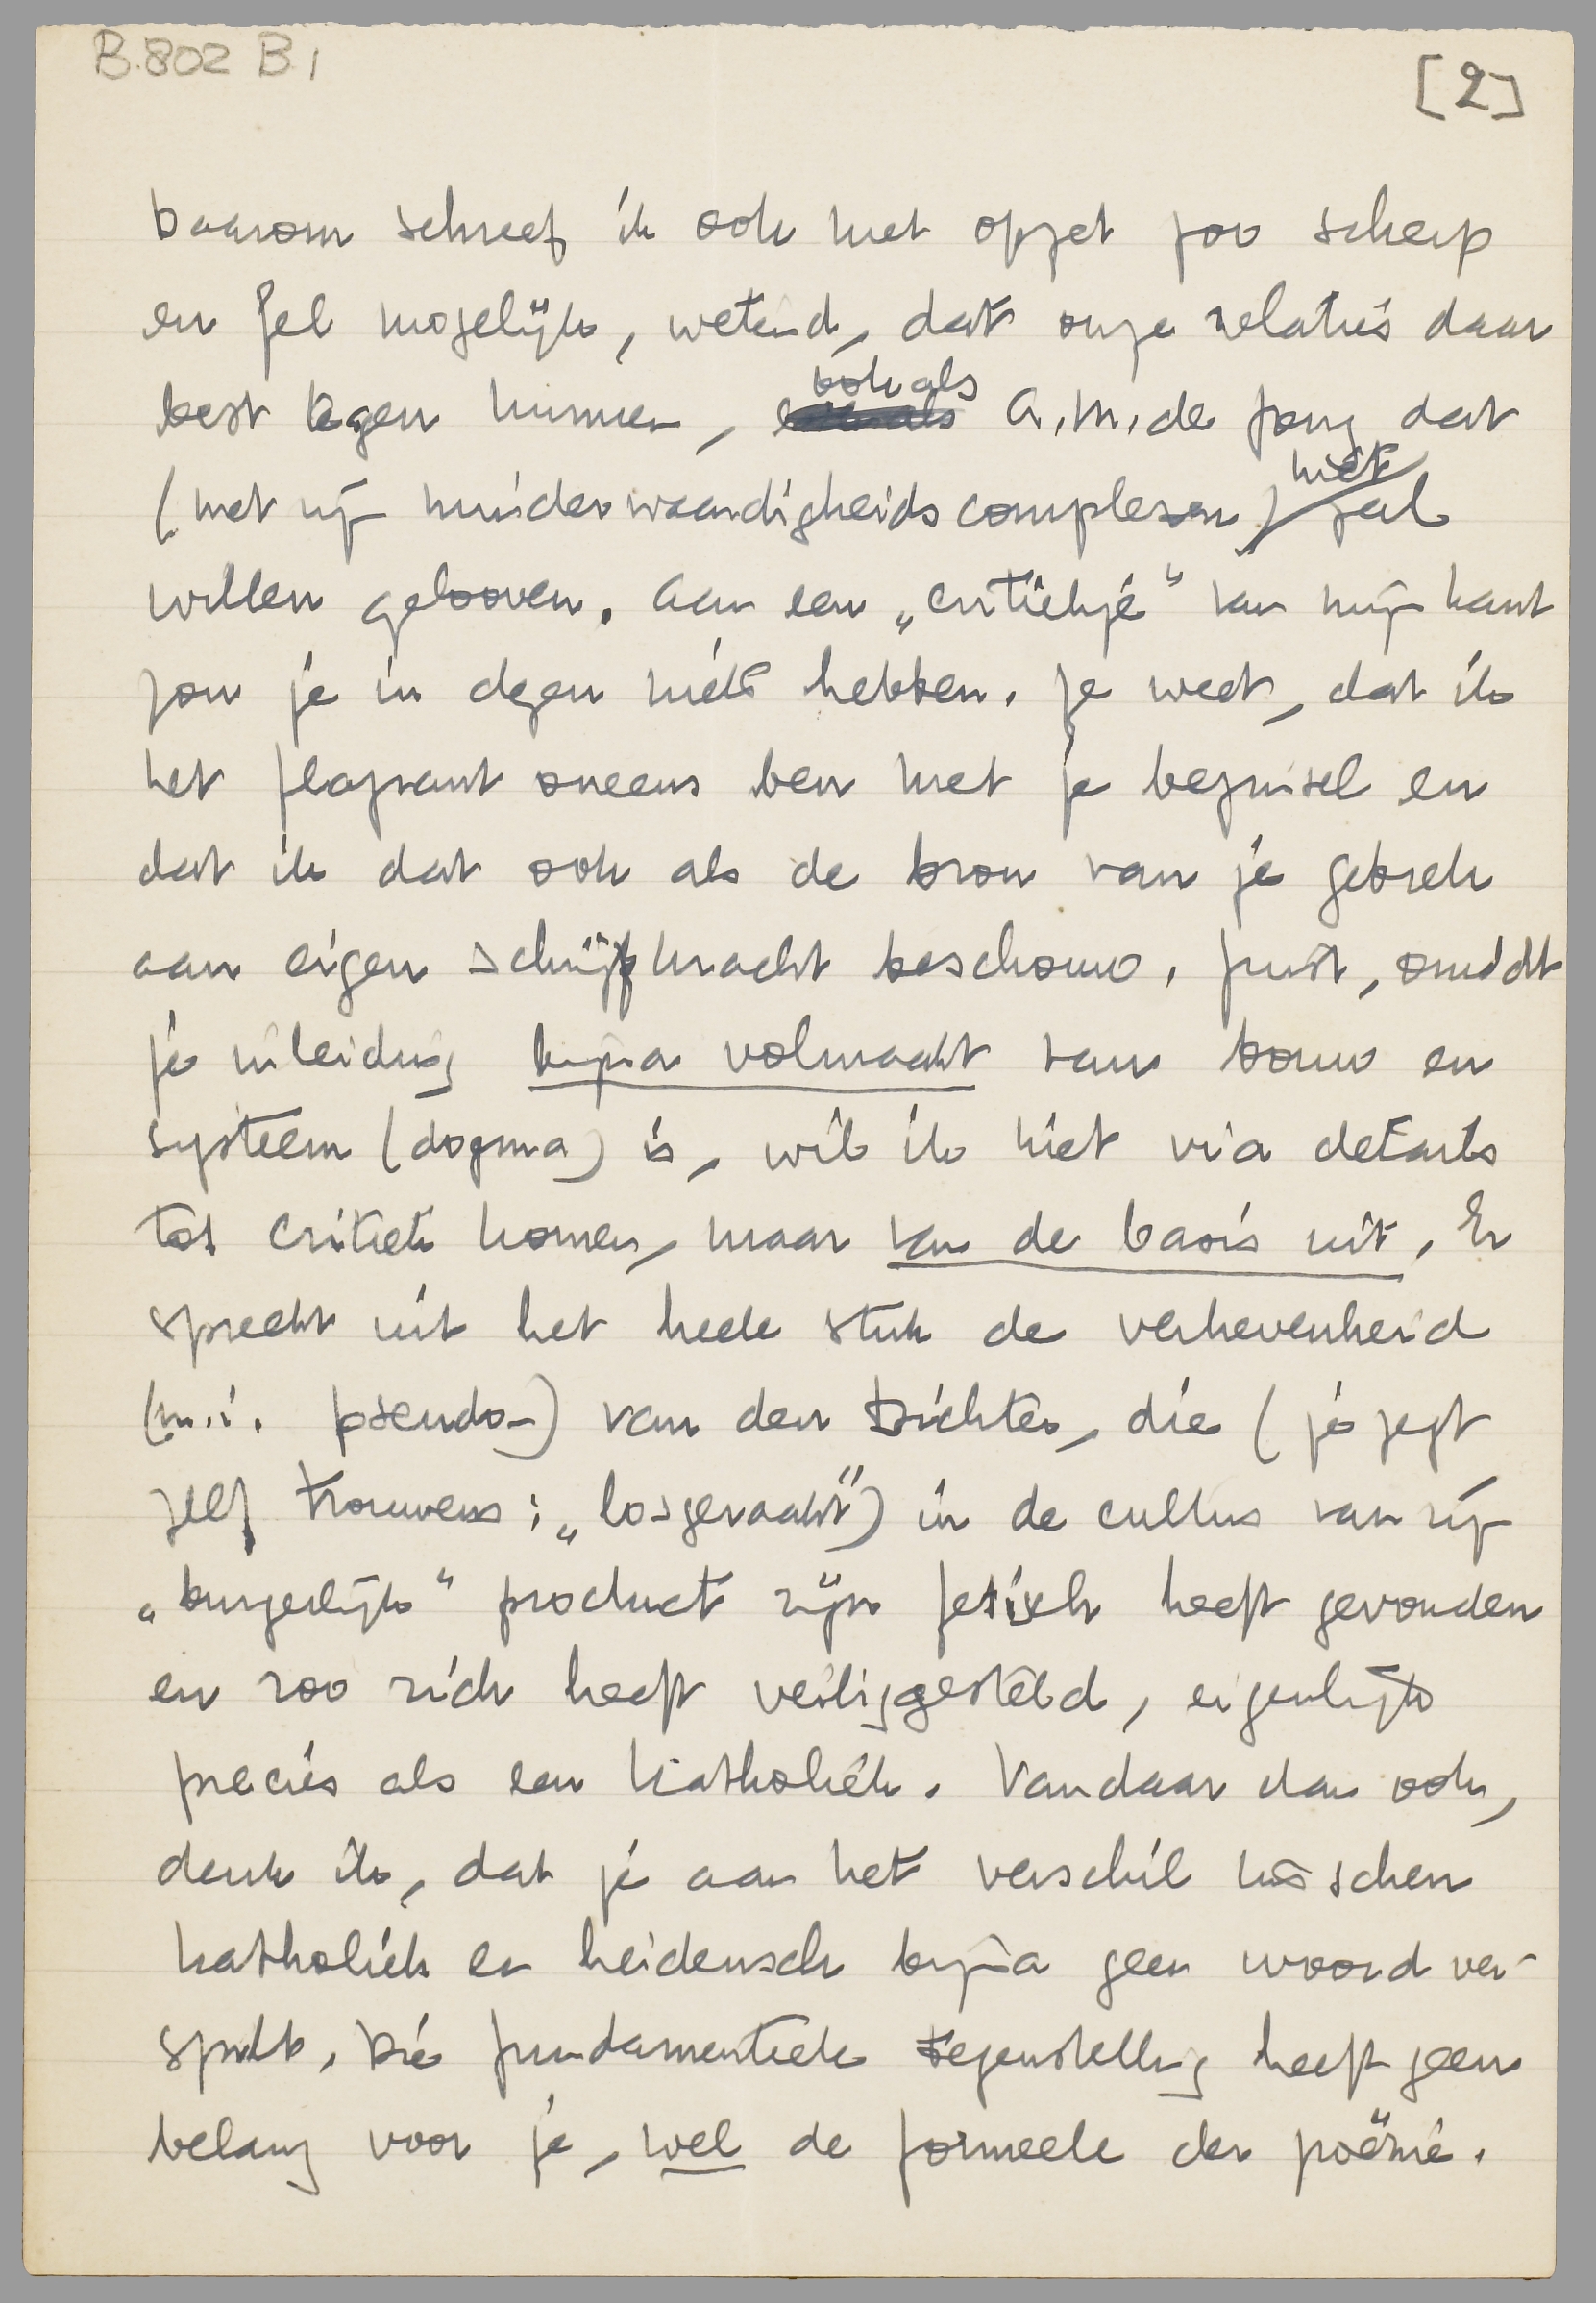 B.802 B1
[2]
Daarom schreef ik ook met opzet zoo scherp
en fel mogelijk, wetend, dat onze relaties daar
best tegen kunnen, ook als A.M. de Jong dat
(met zijn minderwaardigheidscomplexen) niet zal
willen gelooven. Aan een „critiekje” van mijn kant
zou je in dezen niets hebben. Je weet, dat ik
het flagrant oneens ben met je beginsel en
dat ik dat ook als de bron van je gebrek
aan eigen schrijfkracht beschouw. Juist, omdat
je inleiding bijna volmaakt van bouw en
systeem (dogma) is, wil ik niet via details
tot critiek komen, maar van de basis uit. Er
spreekt uit het heele stuk de verhevenheid
(m.i. pseudo-) van den Dichter, die (je zegt
zelf trouwens: „losgeraakt”) in de cultus van zijn
„burgerlijk” product zijn fetisch heeft gevonden
en zoo zich heeft veiliggesteld, eigenlijk
precies als een katholiek. Vandaar dan ook,
denk ik, dat je aan het verschil tusschen
katholiek en heidensch bijna geen woord ver-
spilt. Die fundamenteele tegenstelling heeft geen
belang voor je, wel de formeele der poëzie.